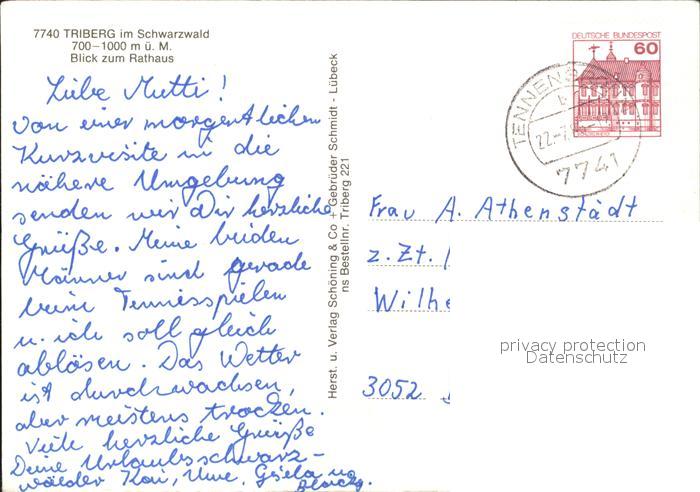 7740 TRIBERG im Schwarzwald
700–1000 m ü. M.
Blick zum Rathaus
Liebe Mutti!
Von einer morgentlichen
Kurzvisite in die
nähere Umgebung
senden wir Dir herzliche
Grüße. Meine beiden
Männer sind gerade
beim Tennisspielen
u. ich soll gleich
ablösen. Das Wetter
ist durchwachsen,
aber meistens trocken.
Viele herzliche Grüße
Deine Urlaubsschwarz-
wälder Kai, Uwe, Gisela
Herst. u. Verlag Schöning & Co + Gebrüder Schmidt - Lübeck
ns Bestellnr. Triberg 221
DEUTSCHE BUNDESPOST
60
TENNENB
b
22.-7.
7741
Frau A. Athenstädt
z. Zt.
Wilhe
3052
privacy protection
Datenschutz